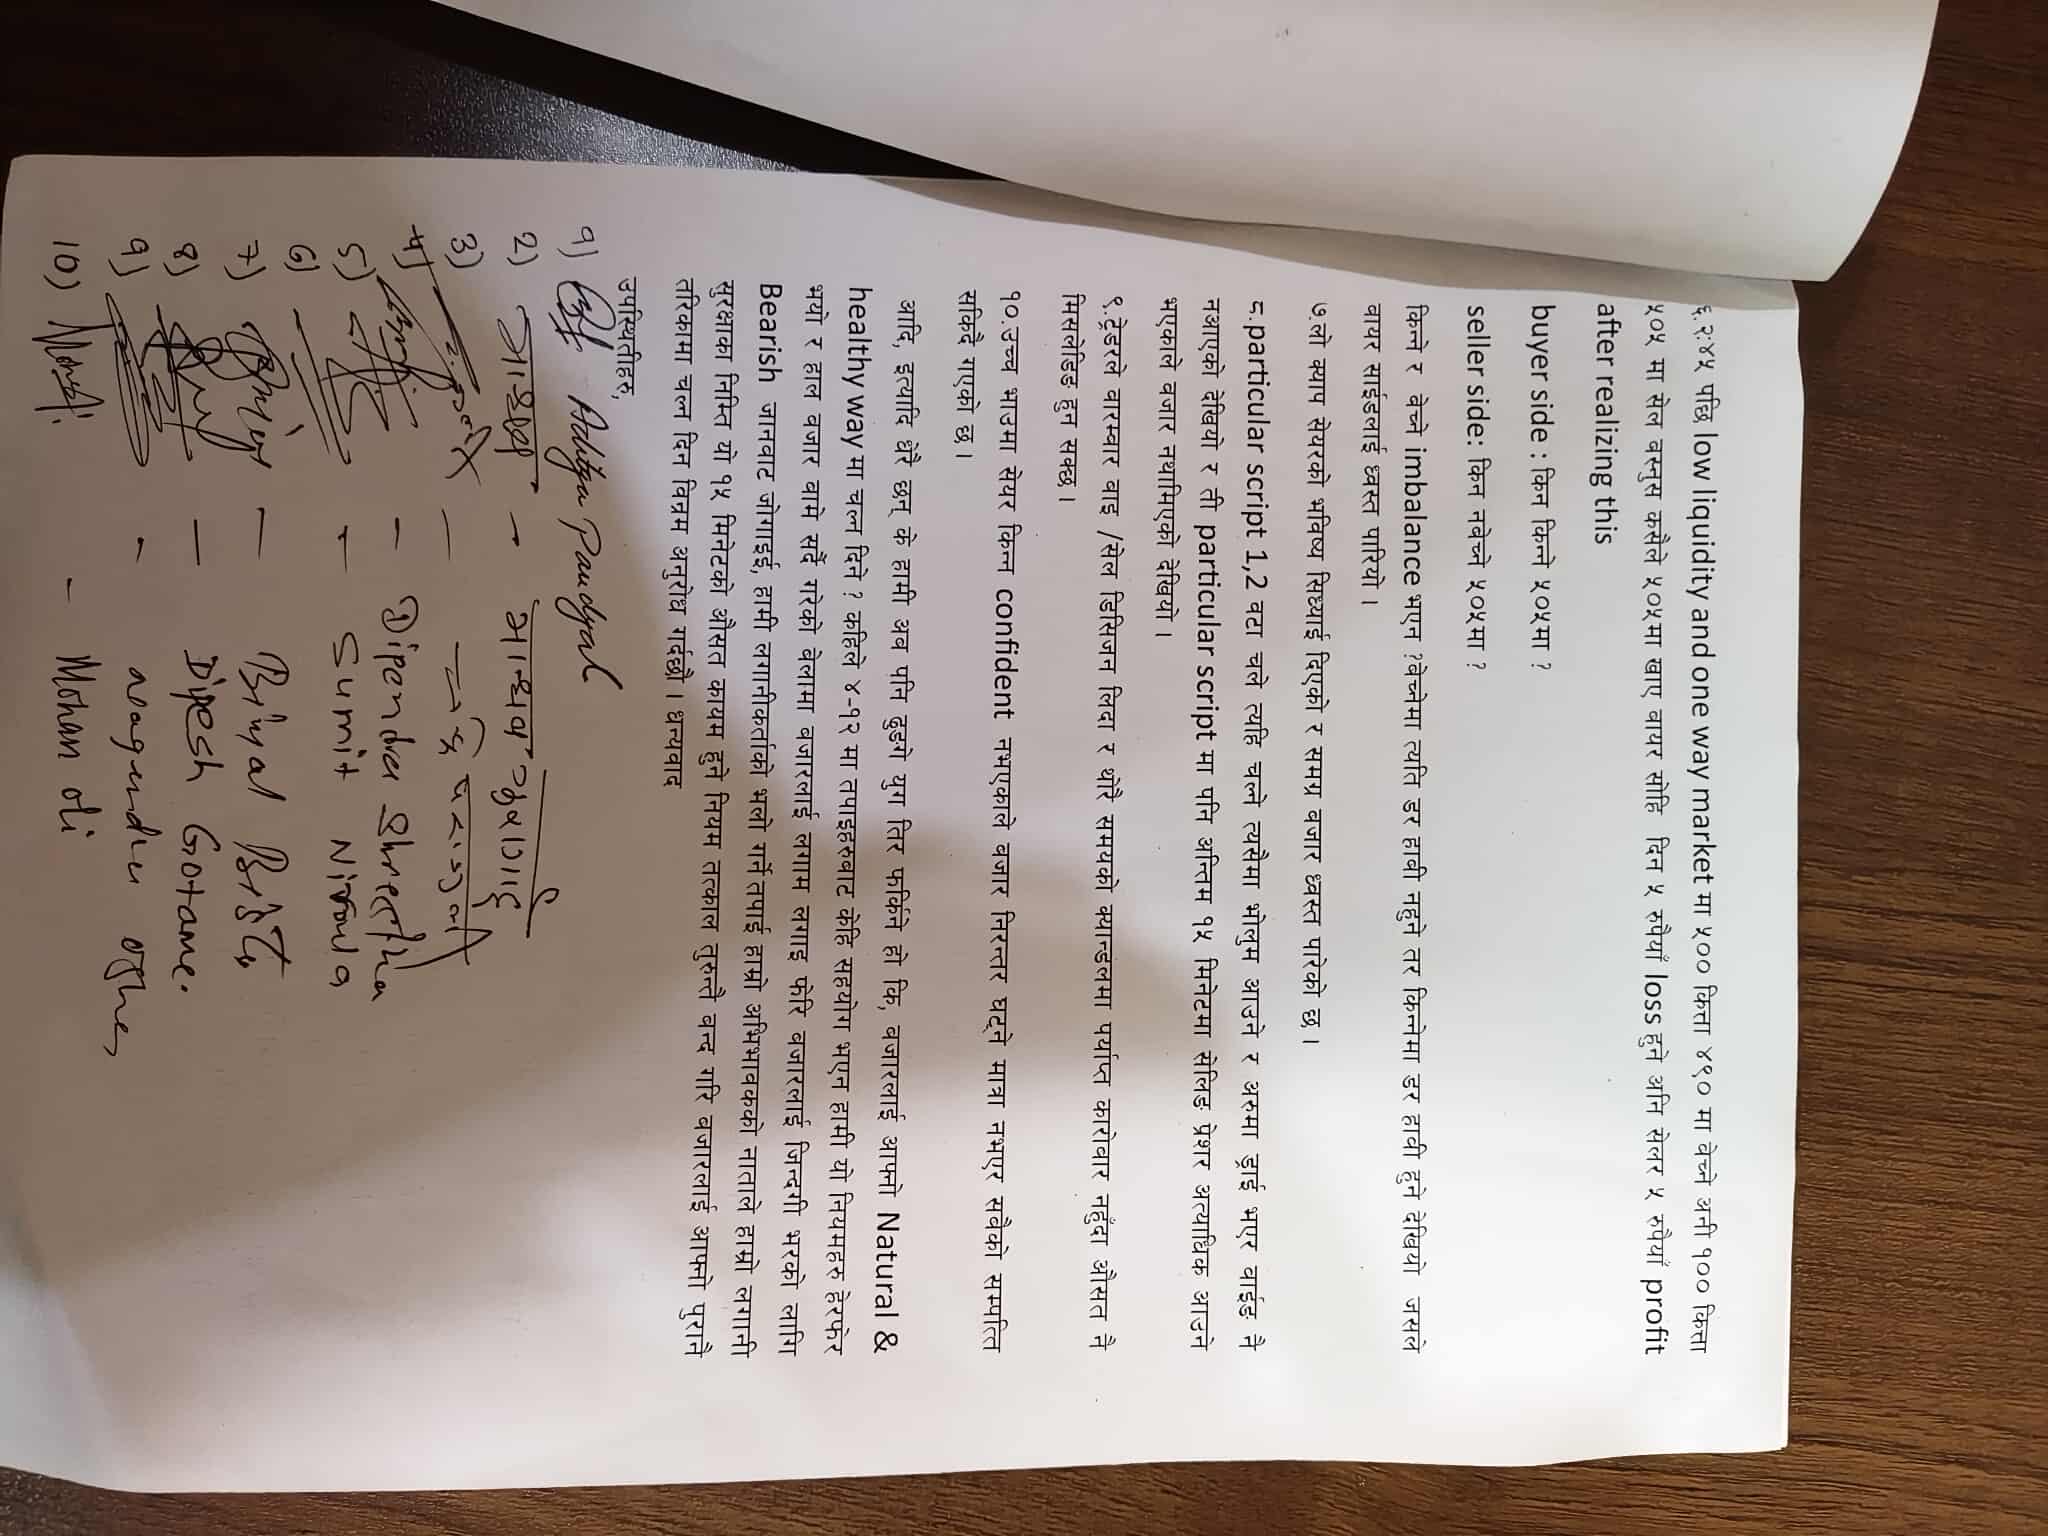 ६.२:४५ पछि low liquidity and one way market मा ५०० कित्ता ४९० मा बेच्ने अनी १०० कित्ता
५०५ मा सेल बस्नुस कसैले ५०५मा खाए बायर सोहि दिन ५ रुपैयाँ loss हुने अनि सेलर ५ रुपैयाँ profit
after realizing this
buyer side : किन किन्ने ५०५मा ?
seller side: किन नबेच्ने ५०५मा ?
किन्ने र बेच्ने imbalance भएन ?बेच्नेमा त्यति डर हावी नहुने तर किन्नेमा डर हावी हुने देखियो जसले
बायर साईडलाई ध्वस्त पारियो ।
७.लो क्याप सेयरको भविष्य सिध्याई दिएको र समग्र बजार ध्वस्त पारेको छ ।
८.particular script 1,2 वटा चले त्यहि चल्ने त्यसैमा भोलुम आउने र अरुमा ड्राई भएर वाईङ नै
नआएको देखियो र ती particular script मा पनि अन्तिम १५ मिनेटमा सेलिङ प्रेशर अत्याधिक आउने
भएकाले बजार नथामिएको देखियो ।
९.ट्रेडरले बारम्बार बाइ /सेल डिसिजन लिदा र थोरै समयको क्यान्डलमा पर्याप्त कारोबार नहुंदा औसत नै
मिसलेडिङ हुन सक्छ ।
१०.उच्च भाउमा सेयर किन्न confident नभएकाले बजार निरन्तर घट्ने मात्रा नभएर सबैको सम्पत्ति
सकिदै गएको छ ।
आदि, इत्यादि धेरै छन् के हामी अब पनि ढुङ्गे युग तिर फर्किने हो कि, बजारलाई आफ्नो Natural &
healthy way मा चल्न दिने ? कहिले ४-१२ मा तपाइहरुबाट केहि सहयोग भएन हामी यो नियमहरु हेरफेर
भयो र हाल बजार बामे सर्दै गरेको बेलामा बजारलाई लगाम लगाइ फेरि बजारलाई जिन्दगी भरको लागि
Bearish जानबाट जोगाइ, हामी लगानीकर्ताको भलो गर्ने तपाई हाम्रो अभिभावकको नाताले हाम्रो लगानी
सुरक्षाका निम्ति यो १५ मिनेटको औसत कायम हुने नियम तत्काल तुरुन्तै बन्द गरि बजारलाई आफ्नो पुरानै
तरिकामा चल्न दिन विनम्र अनुरोध गर्दछौ । धन्यवाद
उपस्थितीहरु,
१) Aditya Paudyal
2) -
3) -
4) - Dipendra Shrestha
5) - Sumit Niraula
6)
7) -
8) - Dipesh Gotame.
9) -
10) - Mohan oli